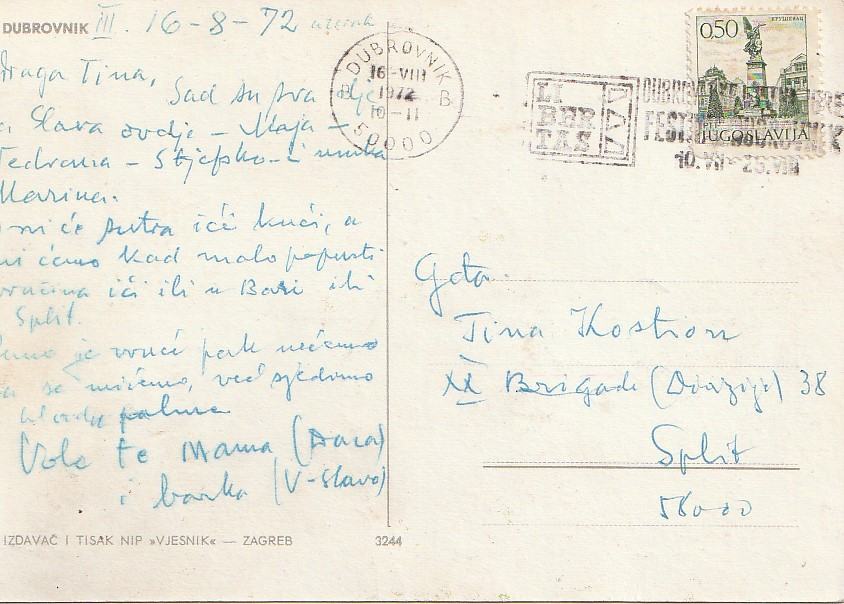 DUBROVNIK III. 16-8-72
Draga Tina,
Sad su tva dje
Slava ovdje - Maja -
Vedrana - Stjepko - i unuka
Marina.
ni će sutra ići kući, a
mi ćemo kad malo popusti
vrućina ići ili u Bari ili
Split.
je vrući pa nećemo
da se mičemo, već sjedimo
u hladu palme
Vole te Mama (Daca)
i barka (V-Slava)
IZDAVAČ I TISAK NIP »VJESNIK« — ZAGREB 3244
DUBROVNIK
16-VIII
1972
10-11
B B
50000
LI
BER
TAS
10.VII - 25.VIII
0,50 КРУШЕВАЦ
JUGOSLAVIJA
Gđa.
Tina Kostion
XX Brigade (Divizije) 38
Split
58000